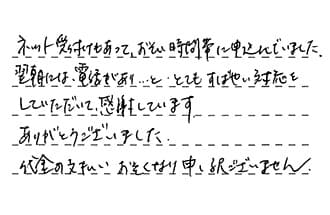 ネット受付もあって、おそい時間帯に申込んでいました。
翌朝には、電話があり…と、とてもすばやい対応を
していただいて、感謝しています。
ありがとうございました。
代金の支払い おそくなり申し訳ございません。